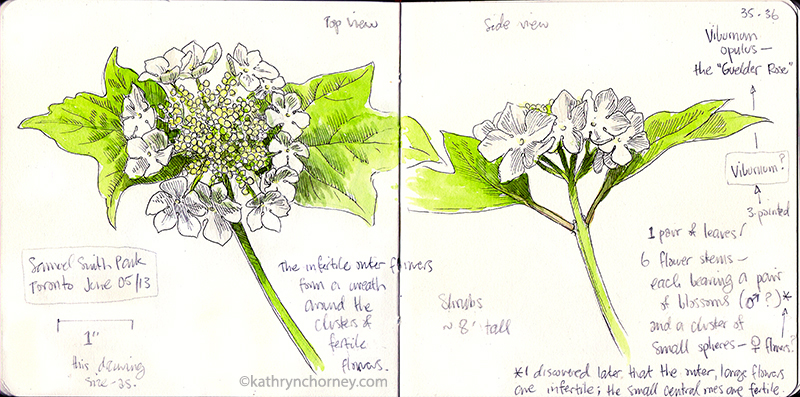 Top view
Samuel Smith Park
Toronto June 05/13
1"
this drawing
size-as.
The infertile outer flowers
form a wreath
around the
clusters of
fertile
flowers.
©kathrynchorney.com
Side view
35-36
Viburnum
opulus –
the "Guelder Rose"
Viburnum?
3-pointed
1 pair of leaves!
6 flower stems –
each bearing a pair
of blossoms (♂?)*
and a cluster of
small spheres – ♀ flowers?
Shrubs
~ 8' tall
*I discovered later, that the outer, large flowers
are infertile; the small central ones are fertile.